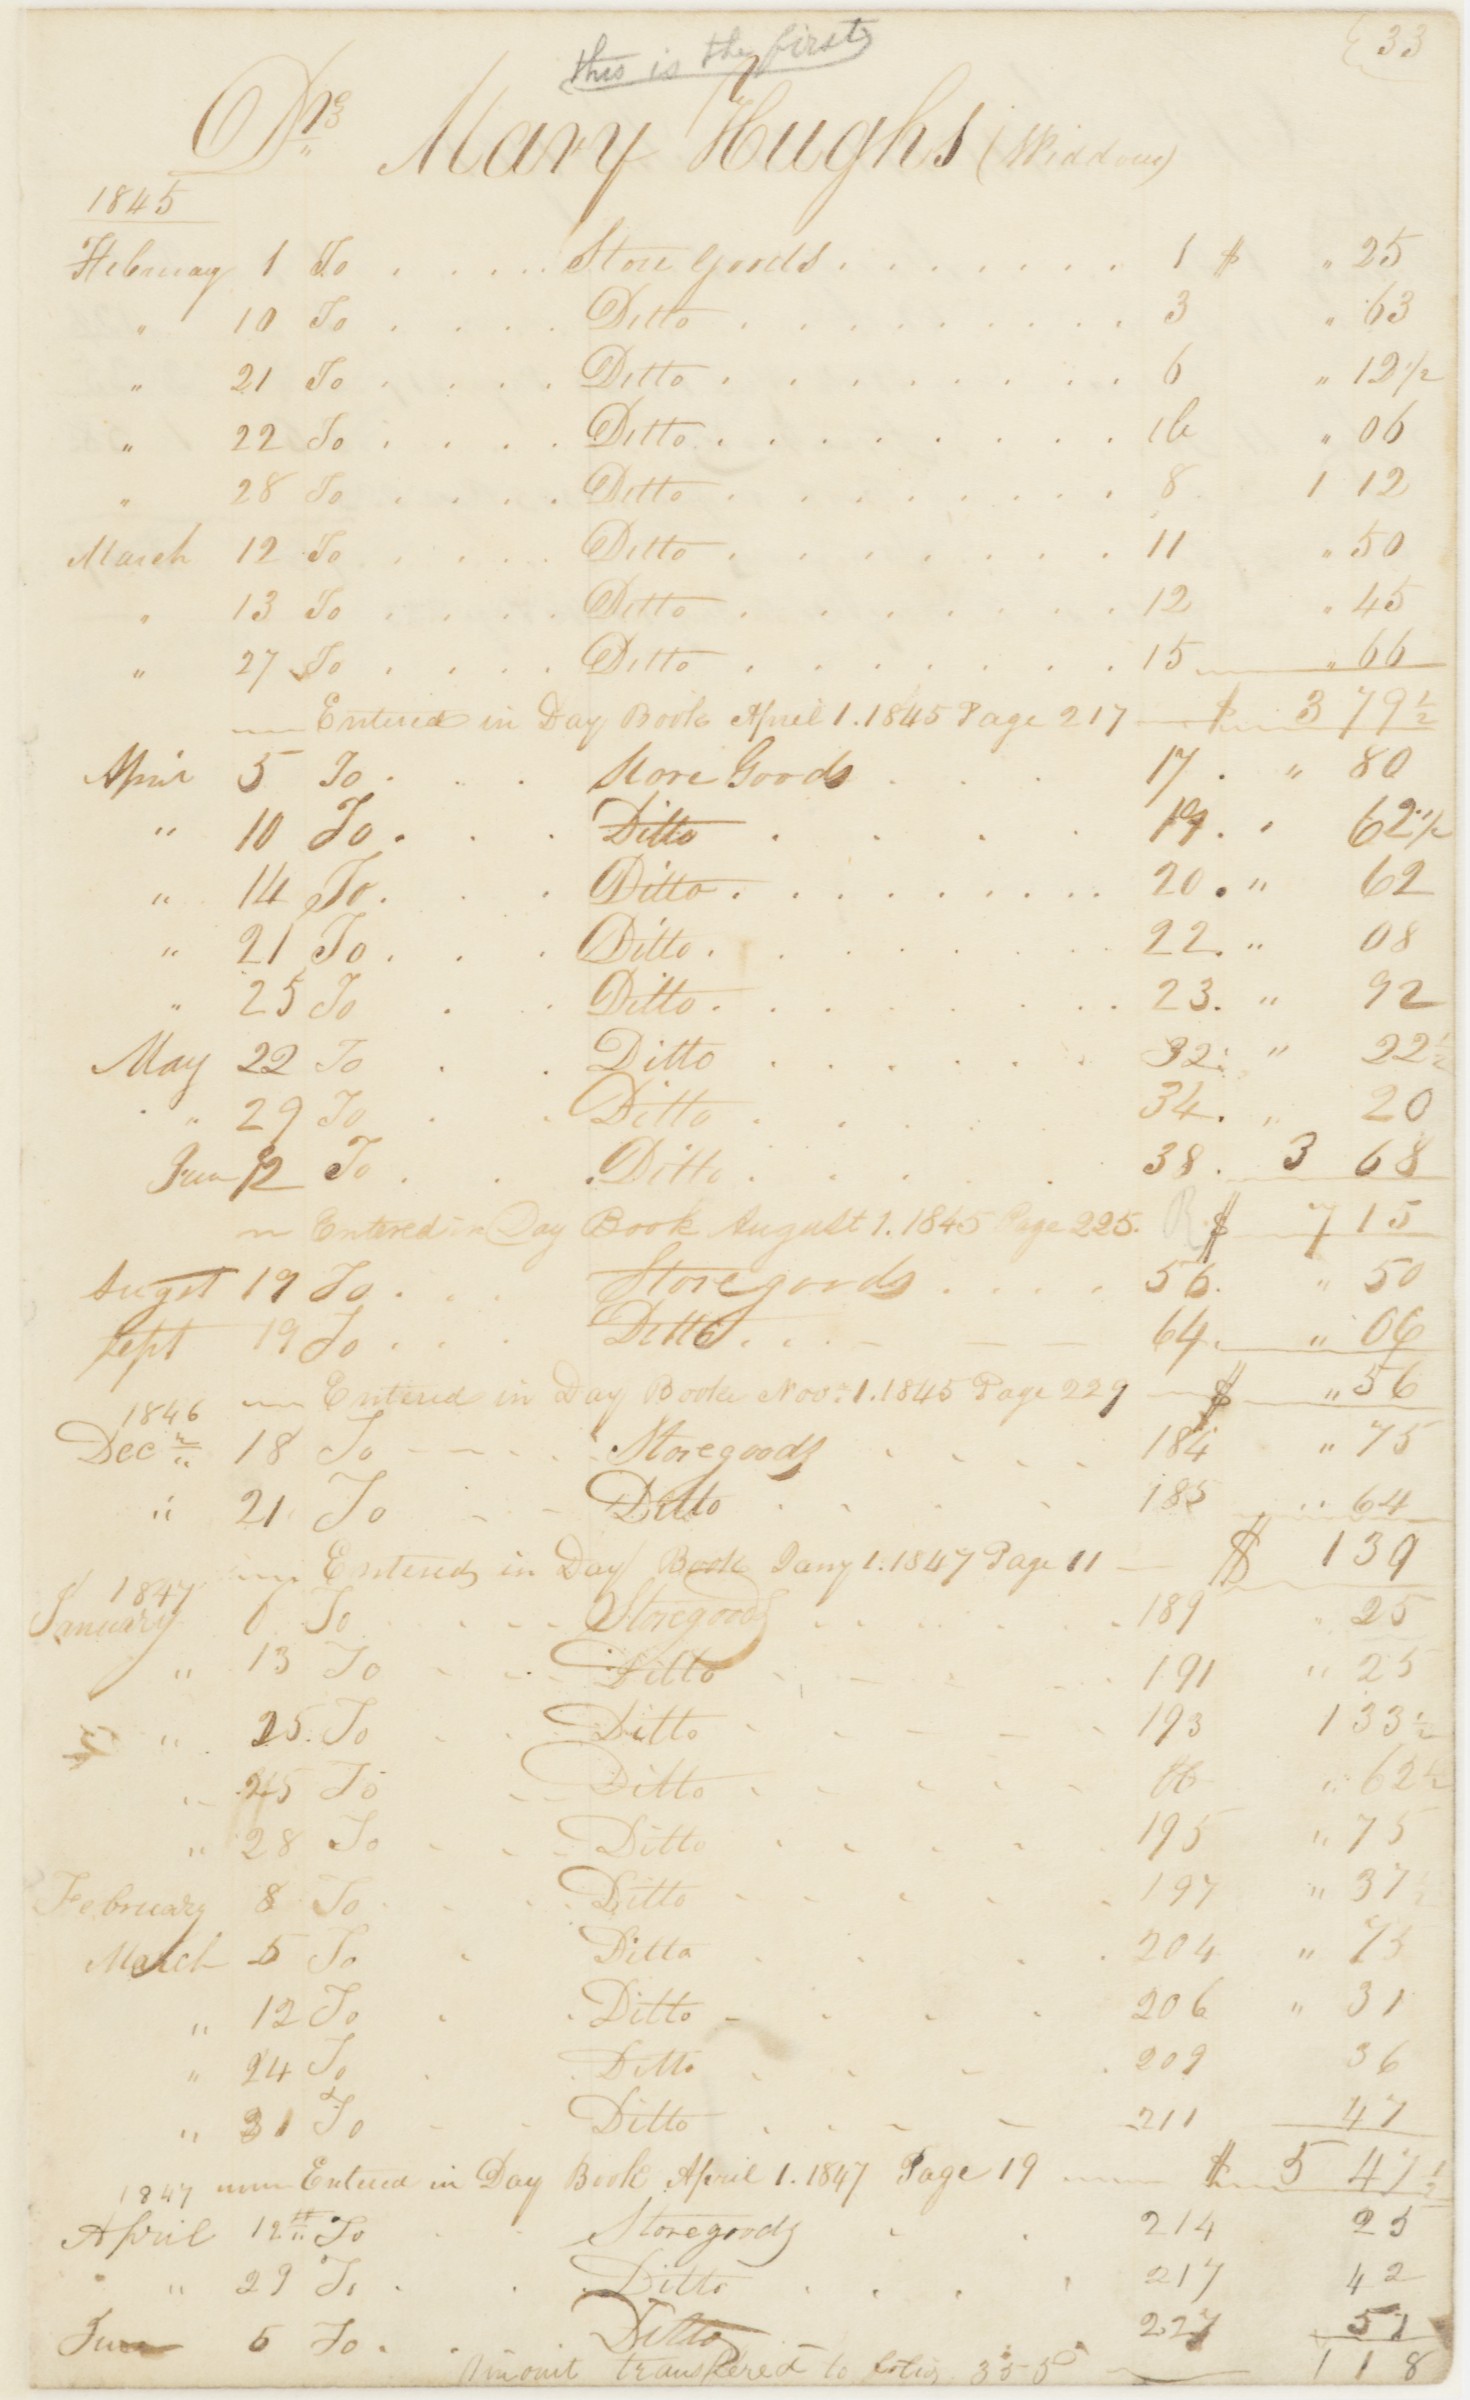 33
this is the first
Drs Mary Hughs (Widdow)
1845
February 1 To . . . . Store Goods . . . . . . . 1 $ " 25
" 10 To . . . . Ditto . . . . . . . . . 3 " 63
" 21 To . . . . Ditto . . . . . . . . 6 " 12 1/2
" 22 To . . . . Ditto . . . . . . . . ib " 06
" 28 To . . . . Ditto . . . . . . . . 8 1 12
March 12 To . . . . Ditto . . . . . . . . 11 " 50
" 13 To . . . . Ditto . . . . . . . . 12 " 45
" 27 To . . . . Ditto . . . . . . . . 15 " 66
Entered in Day Book April 1. 1845 Page 217 $ 3 79 1/2
April 5 To . . . Store Goods . . . 17 . " 80
" 10 To . . . Ditto . . . . 19 . " 62 1/2
" 14 To . . . Ditto . . . . . . . . . 20 . " 62
" 21 To . . . Ditto . . . . . . . 22 . " 08
" 25 To . . Ditto . . . . . . . . 23 . " 92
May 22 To . . Ditto . . . . . . 32 . " 22 1/2
" 29 To . . Ditto . . . . 34 . " 20
Jun 12 To . . . Ditto . . . . . 38 . 3 68
Entered in Day Book August 1. 1845 Page 225. $ 7 15
Augst 19 To . . . Storegoods . . . . 56. " 50
Sept 19 To . . . Ditto . . . 64. " 06
Entered in Day Book Novr. 1. 1845 Page 229 $ " 56
1846
Decr 18 To Storegoods . . . . 184 " 75
" 21 To Ditto . . . . 185 " 64
Entered in Day Book Jany 1. 1847 Page 11 $ 1 39
1847
January 6 To Storegoods . . . . . . 189 " 25
" 13 To Ditto 191 " 25
" 25 To Ditto 193 1 33 1/2
" 25 To Ditto ib " 62 1/2
" 28 To Ditto 195 " 75
February 8 To Ditto 197 " 37 1/2
March 5 To Ditto 204 " 75
" 12 To Ditto 206 " 31
" 24 To Ditto 209 36
" 31 To Ditto 211 47
Entered in Day Book April 1. 1847 Page 19 $ 5 47 1/2
1847
April 12th To Storegoods 214 25
" 29 To . . Ditto . . . . 217 42
June 5 To . . . Ditto 227 51
Amount transfered to folio 1 18